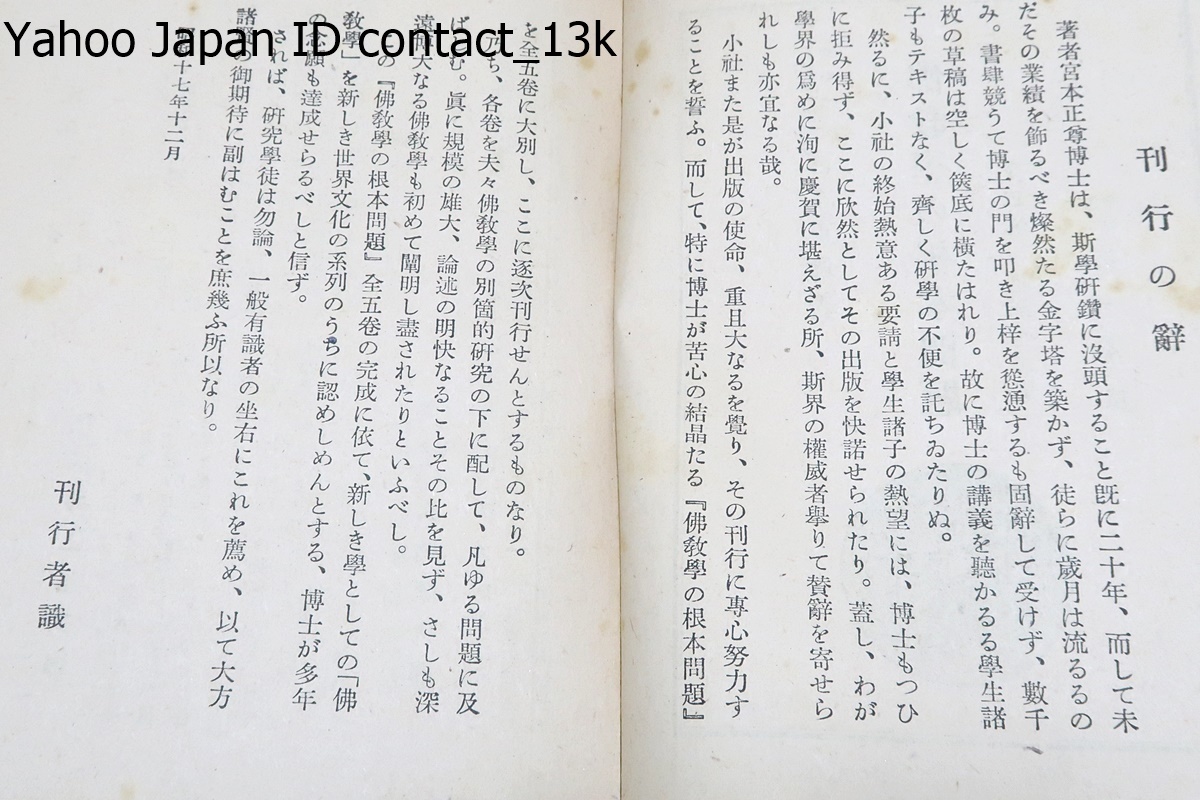 Yahoo Japan ID contact_13k
刊行の辭
著者宮本正尊博士は、斯學硏鑽に沒頭すること既に二十年、而して未
だその業績を飾るべき燦然たる金字塔を築かず、徒らに歲月は流るるの
み。書肆競うて博士の門を叩き上梓を慫慂するも固辭して受けず、數千
枚の草稿は空しく篋底に橫たはれり。故に博士の講義を聽かるる學生諸
子もテキストなく、齊しく硏學の不便を託ちゐたりぬ。
然るに、小社の終始熱意ある要請と學生諸子の熱望には、博士もつひ
に拒み得ず、ここに欣然としてその出版を快諾せられたり。蓋し、わが
學界の爲めに洵に慶賀に堪えざる所、斯界の權威者擧りて賛辭を寄せら
れしも亦宜なる哉。
小社また是が出版の使命、重且大なるを覺り、その刊行に專心努力す
ることを誓ふ。而して、特に博士が苦心の結晶たる『佛敎學の根本問題』
を全五卷に大別し、ここに逐次刊行せんとするものなり。
乃ち、各卷を夫々佛敎學の別箇的硏究の下に配して、凡ゆる問題に及
ばしむ。眞に規模の雄大、論述の明快なることその比を見ず、さしも深
遠博大なる佛敎學も初めて闡明し盡されたりといふべし。
この『佛敎學の根本問題』全五卷の完成に依て、新しき學としての「佛
敎學」を新しき世界文化の系列のうちに認めしめんとする、博士が多年
の念願も達成せらるべしと信ず。
されば、硏究學徒は勿論、一般有識者の坐右にこれを薦め、以て大方
諸賢の御期待に副はむことを庶幾ふ所以なり。
昭和十七年十二月
刊行者識